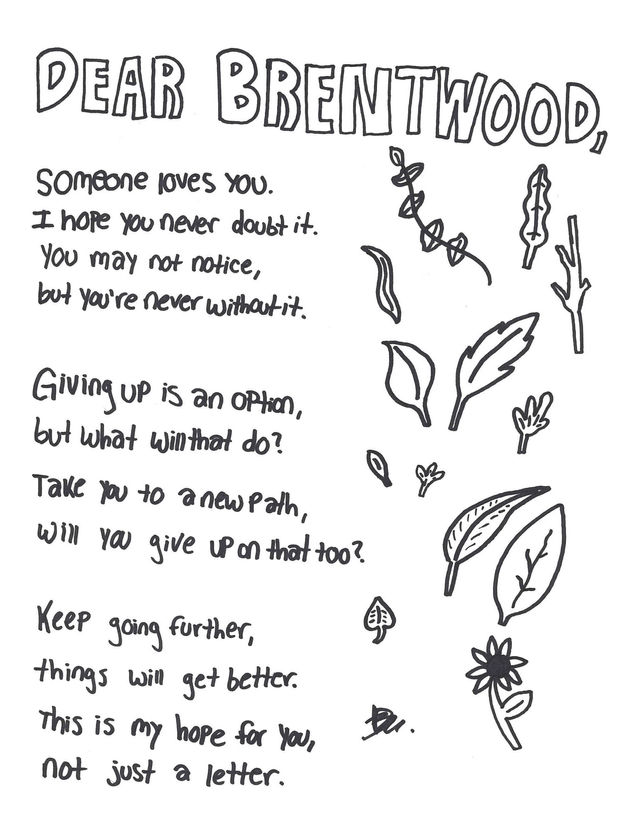 DEAR BRENTWOOD,
Someone loves you.
I hope you never doubt it.
You may not notice,
but you're never without it.
Giving up is an option,
but what will that do?
Take you to a new path,
will you give up on that too?
Keep going further,
things will get better.
This is my hope for you,
not just a letter.